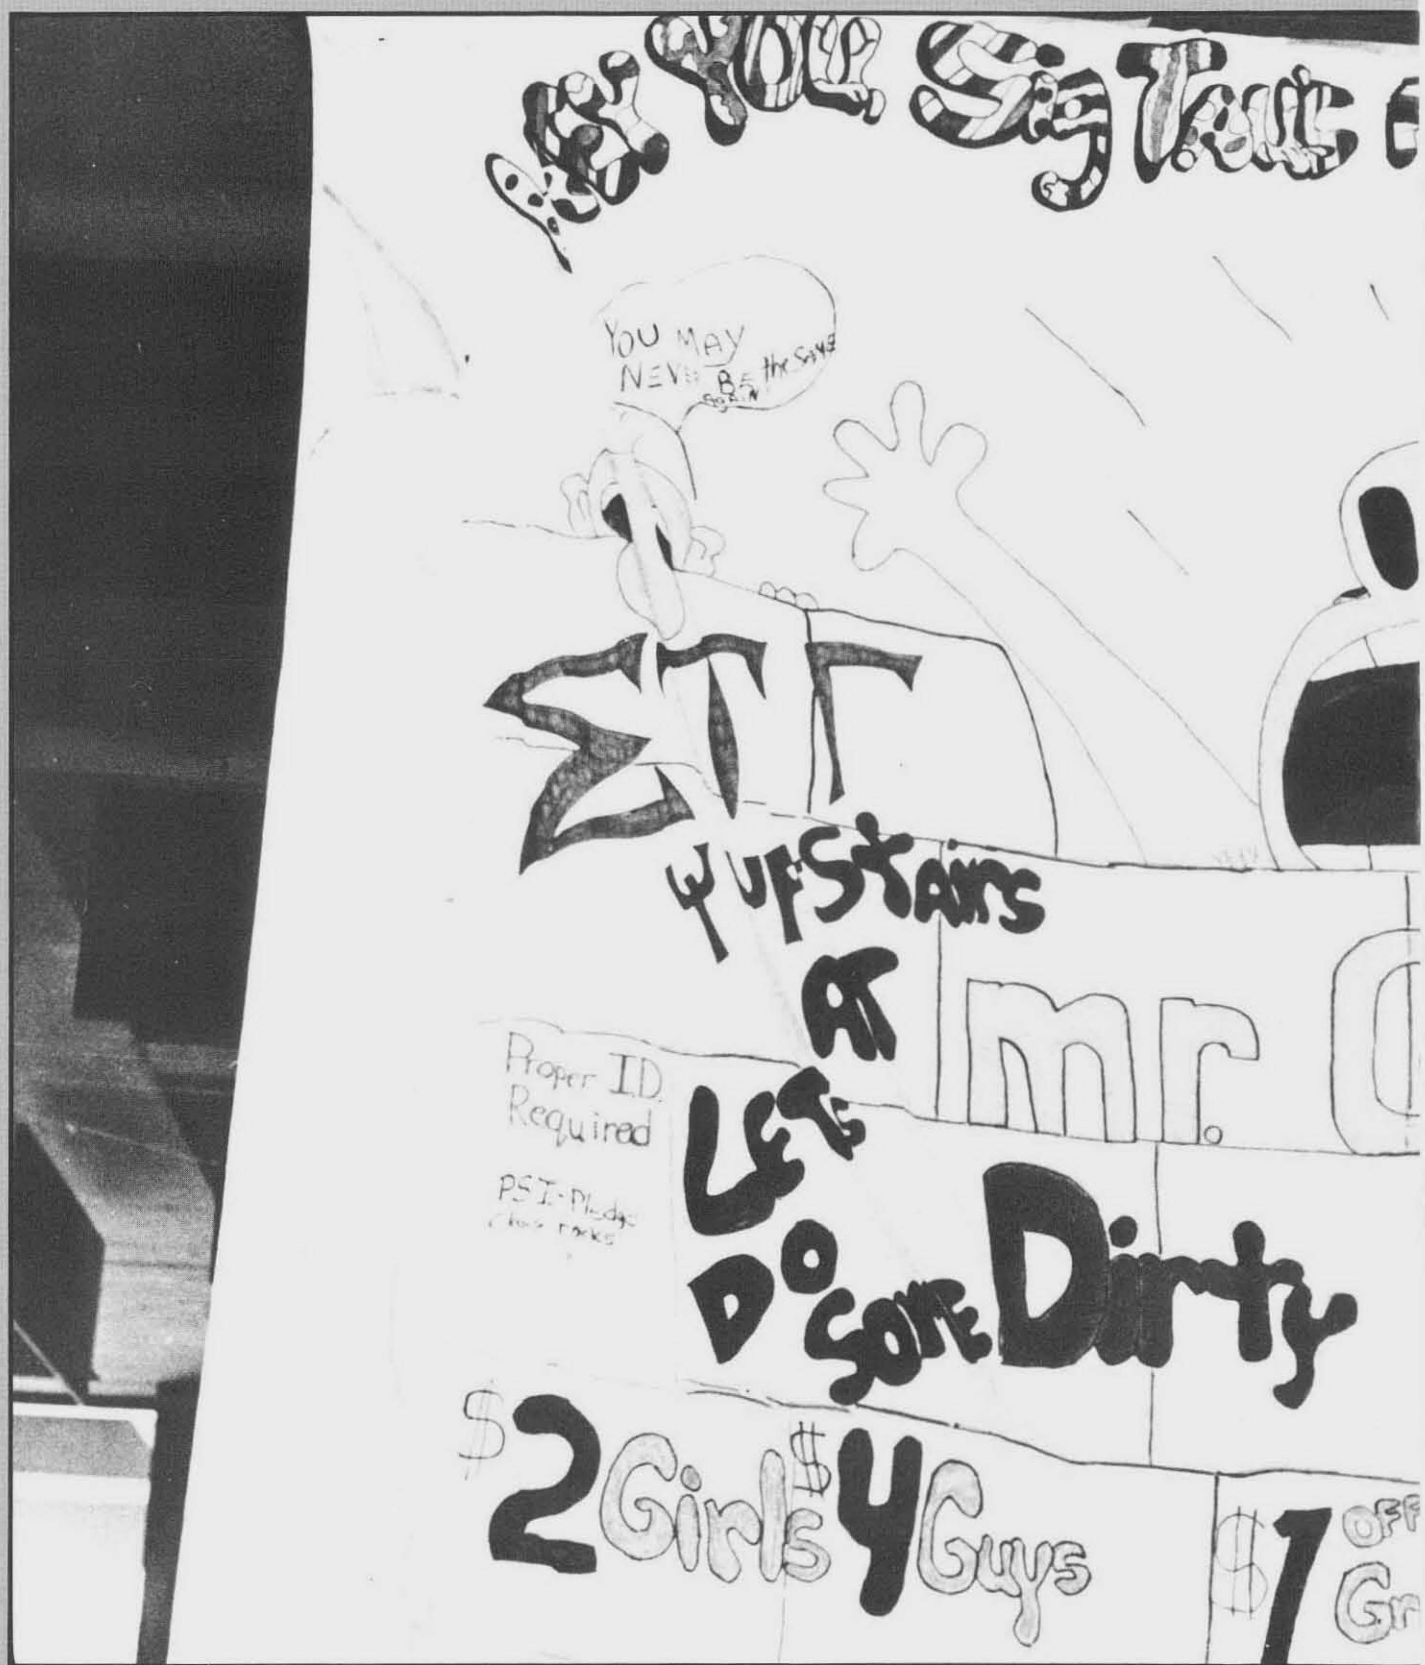 HEY YOU, Sig Tau's
YOU MAY
NEVER BE the SAME
AgAiN
ΣΤΓ
UPStAirs
AT
mr.
Proper I.D.
Required
PSI-Pledge
class rocks
LETS
DO SOME Dirty
$2 Girls $4 Guys
$1 OFF
Gr